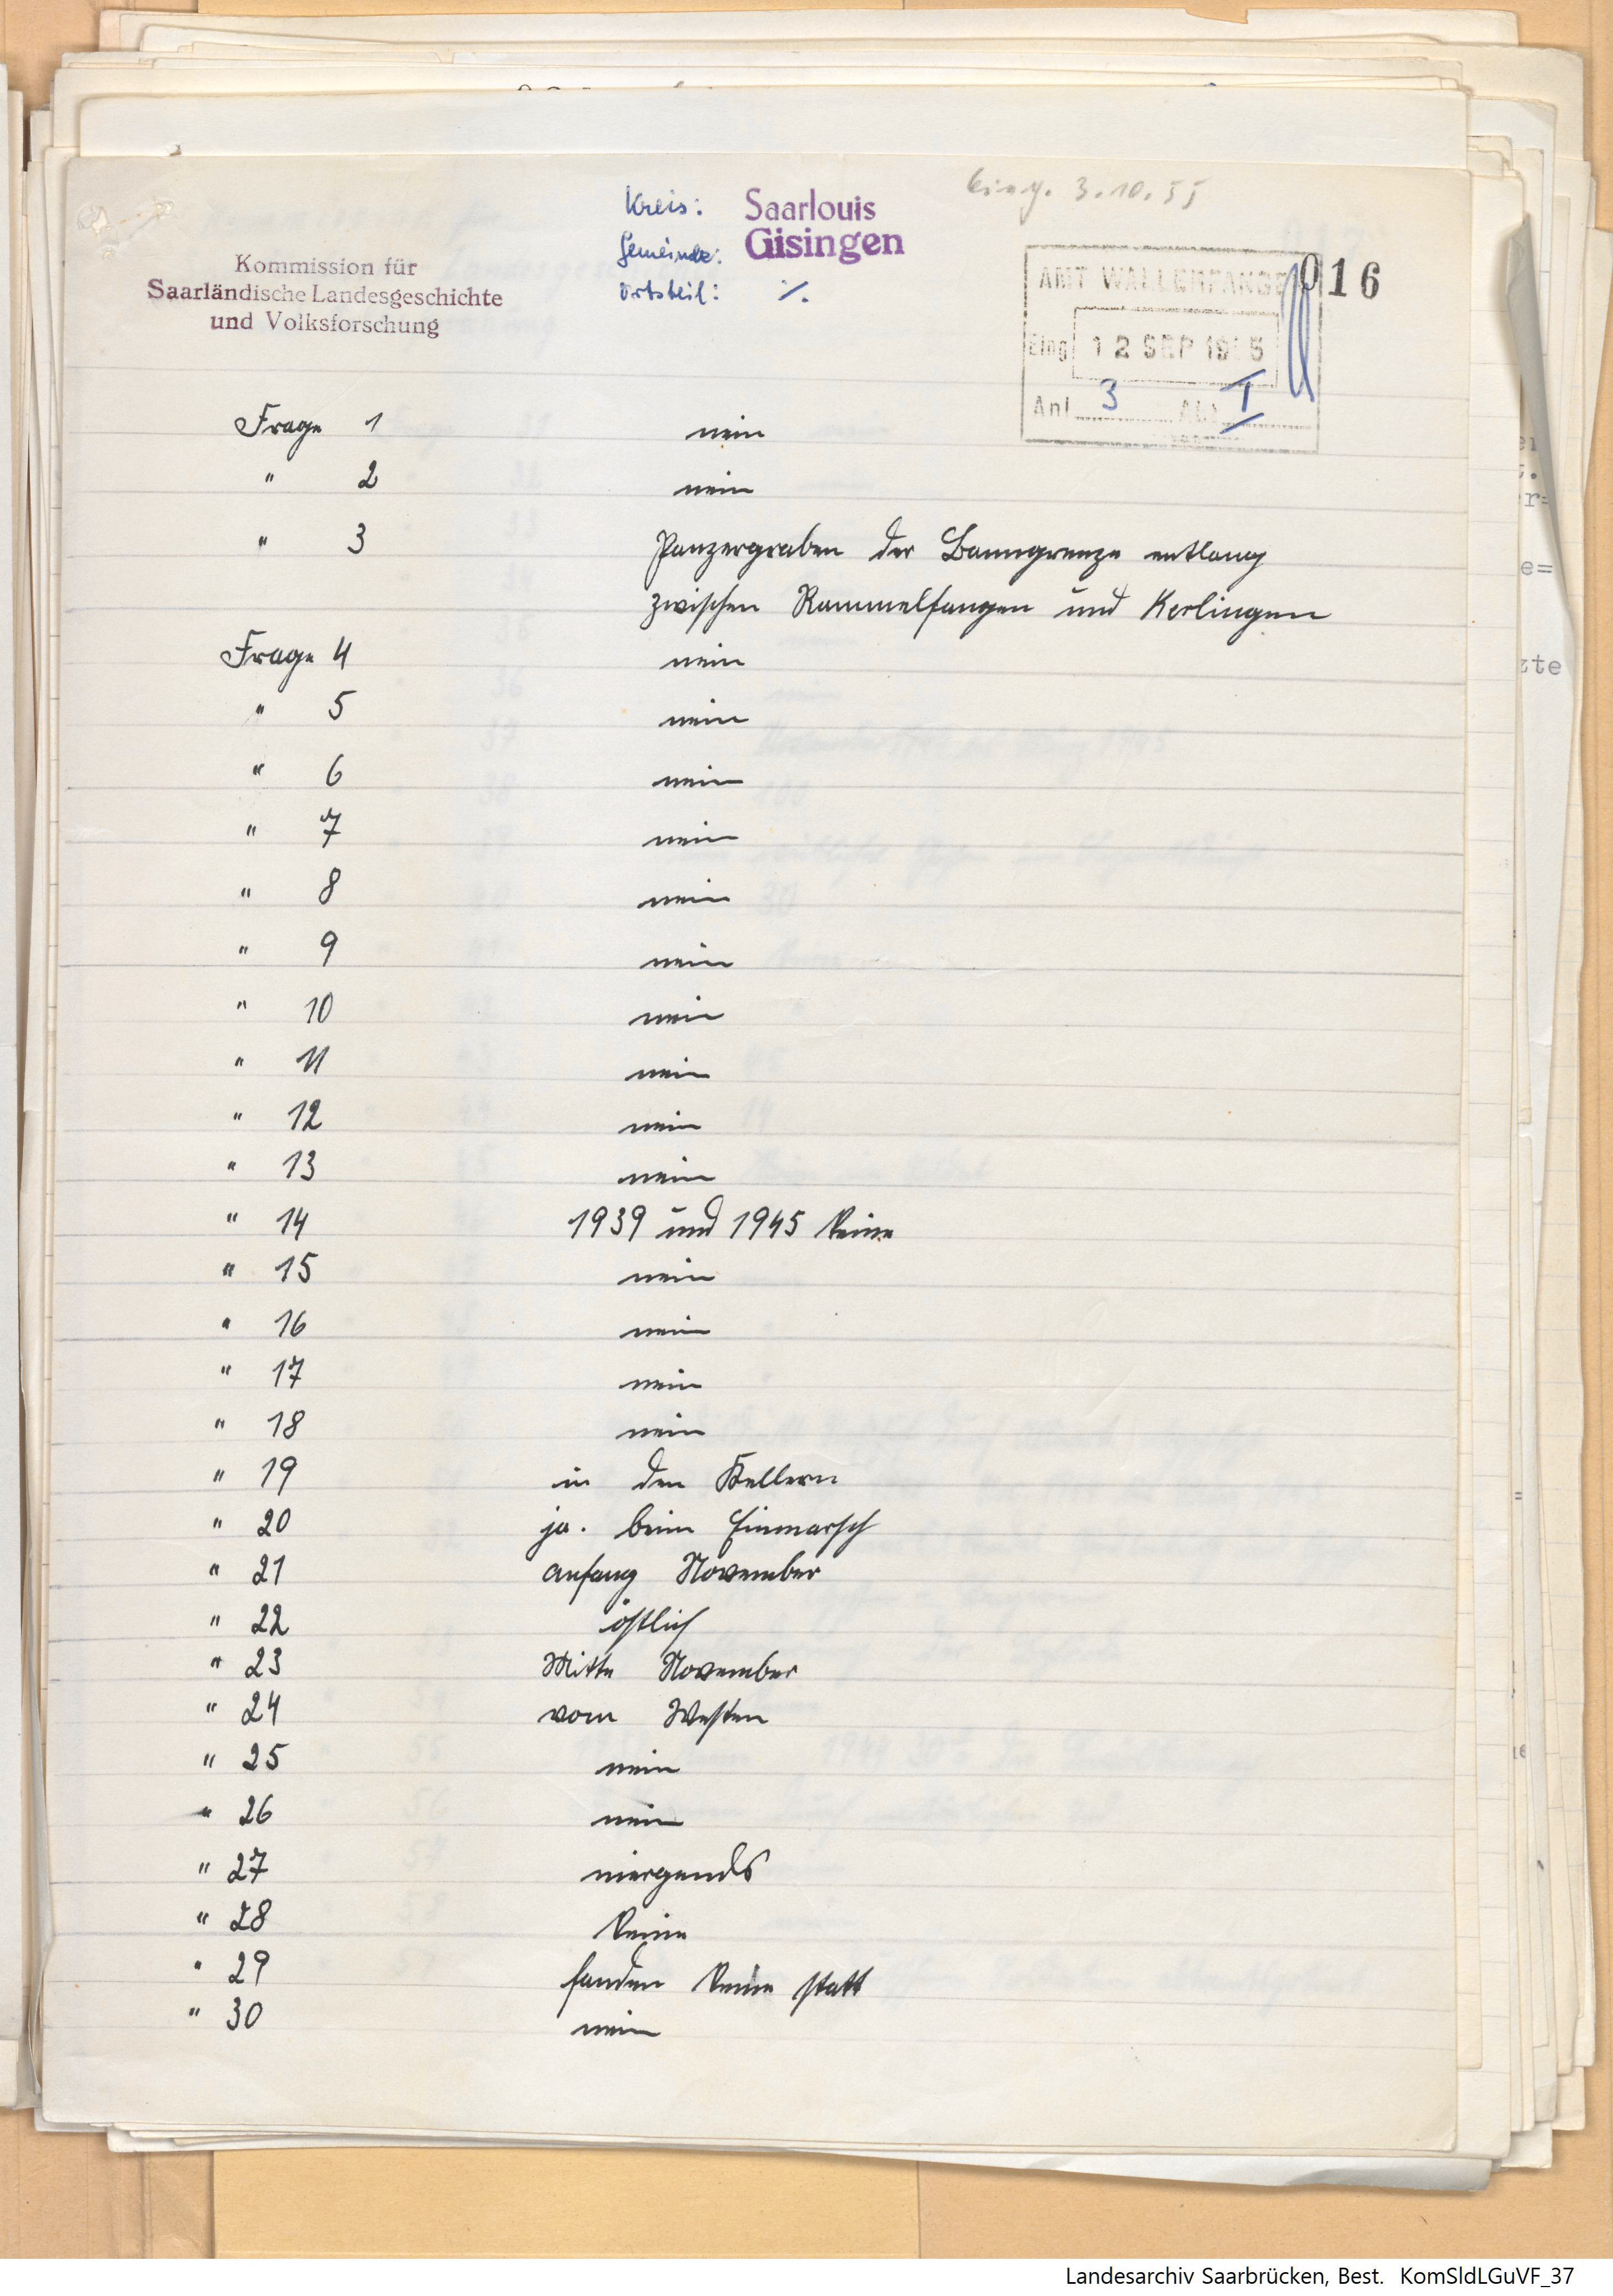 eing. 3.10.55
Kreis: Saarlouis
Gemeinde: Gisingen
Ortsteil: ∕.
Kommission für
Saarländische Landesgeschichte
und Volksforschung
016
AMT WALLERFANGEN
Eing. 12 SEP 1955
Anl. 3 Abt. I
Frage 1 nein
" 2 nein
" 3 Panzergraben der Banngrenze entlang
zwischen Rammelfangen und Kerlingen
Frage 4 nein
" 5 nein
" 6 nein
" 7 nein
" 8 nein
" 9 nein
" 10 nein
" 11 nein
" 12 nein
" 13 nein
" 14 1939 und 1945 keine
" 15 nein
" 16 nein
" 17 nein
" 18 nein
" 19 in den Kellern
" 20 ja. beim Einmarsch
" 21 anfang November
" 22 östlich
" 23 Mitte November
" 24 vom Westen
" 25 nein
" 26 nein
" 27 niergends
" 28 keine
" 29 fanden keine statt
" 30 nein
Landesarchiv Saarbrücken, Best. KomSldLGuVF_37